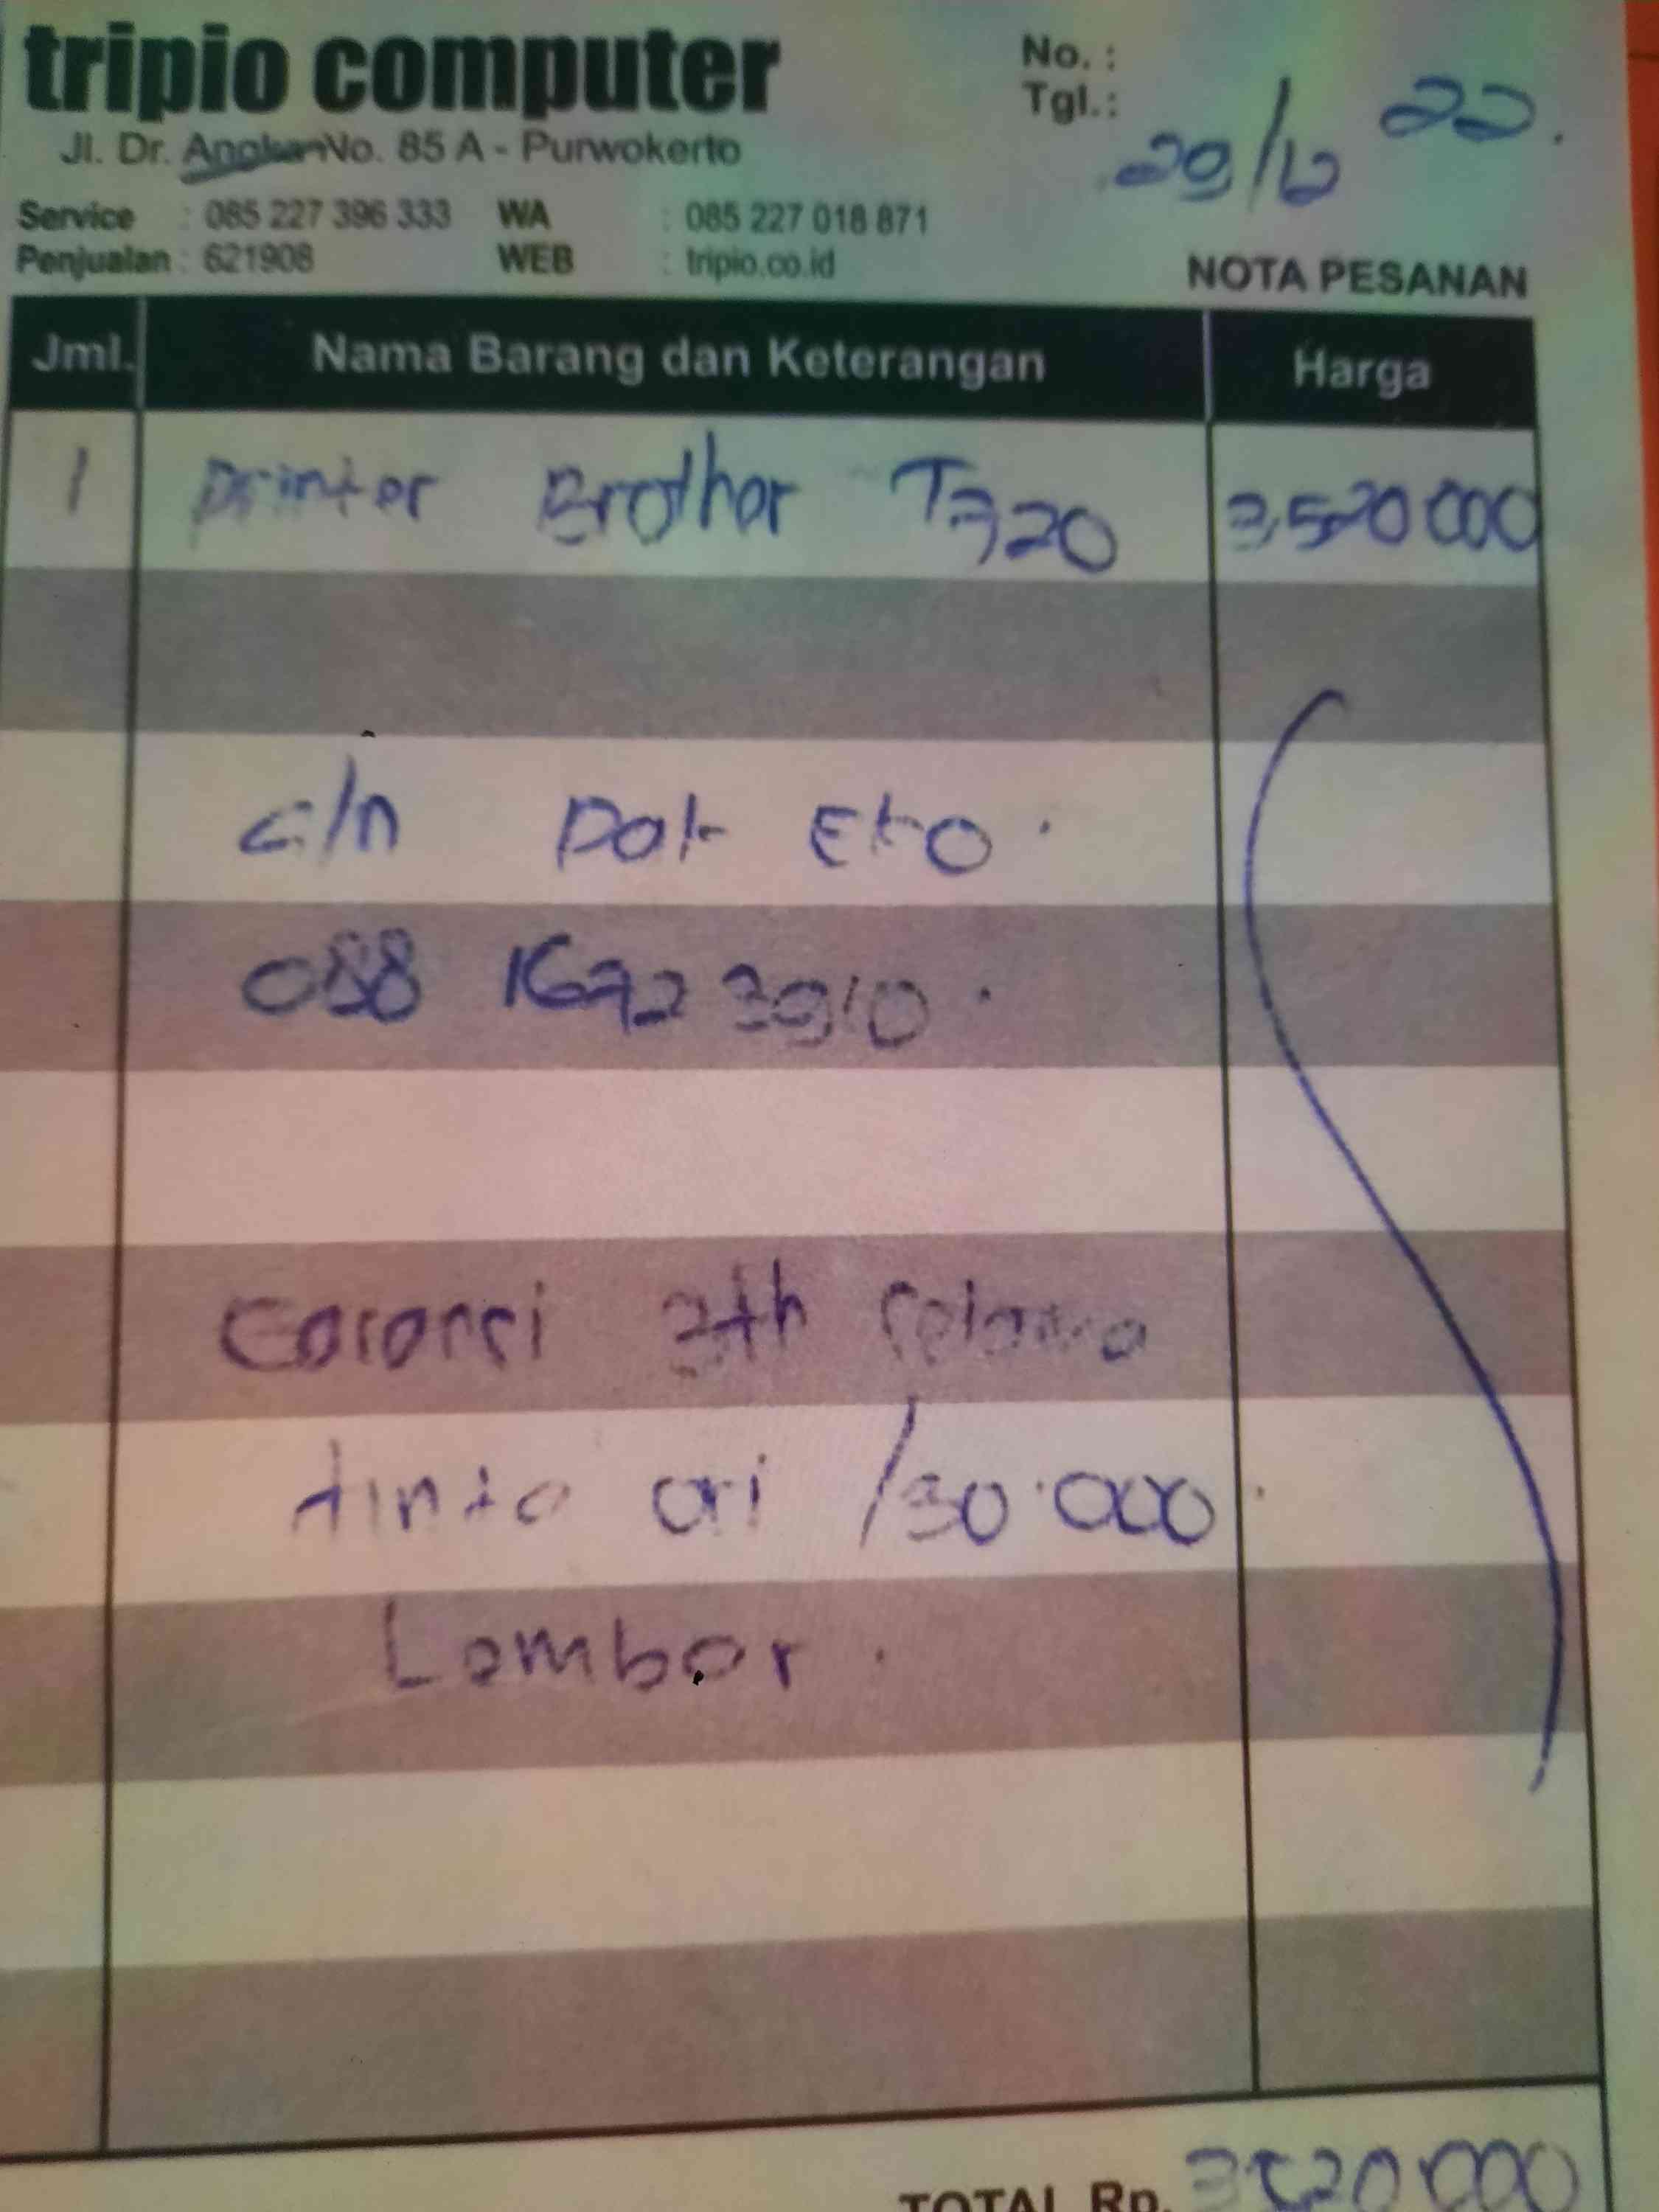 tripio computer
No. :
Tgl.: 29/6 22.
Jl. Dr. Angka No. 85 A - Purwokerto
Service : 085 227 396 333 WA : 085 227 018 871
Penjualan : 621908 WEB : tripio.co.id
NOTA PESANAN
Jml. Nama Barang dan Keterangan Harga
1 Printer Brother T720 3,520 000
c/n Pak Eko.
088 1672 3910.
Garansi 3th selama
tinta ori /30.000
Lembar.
TOTAL Rp. 3520.000